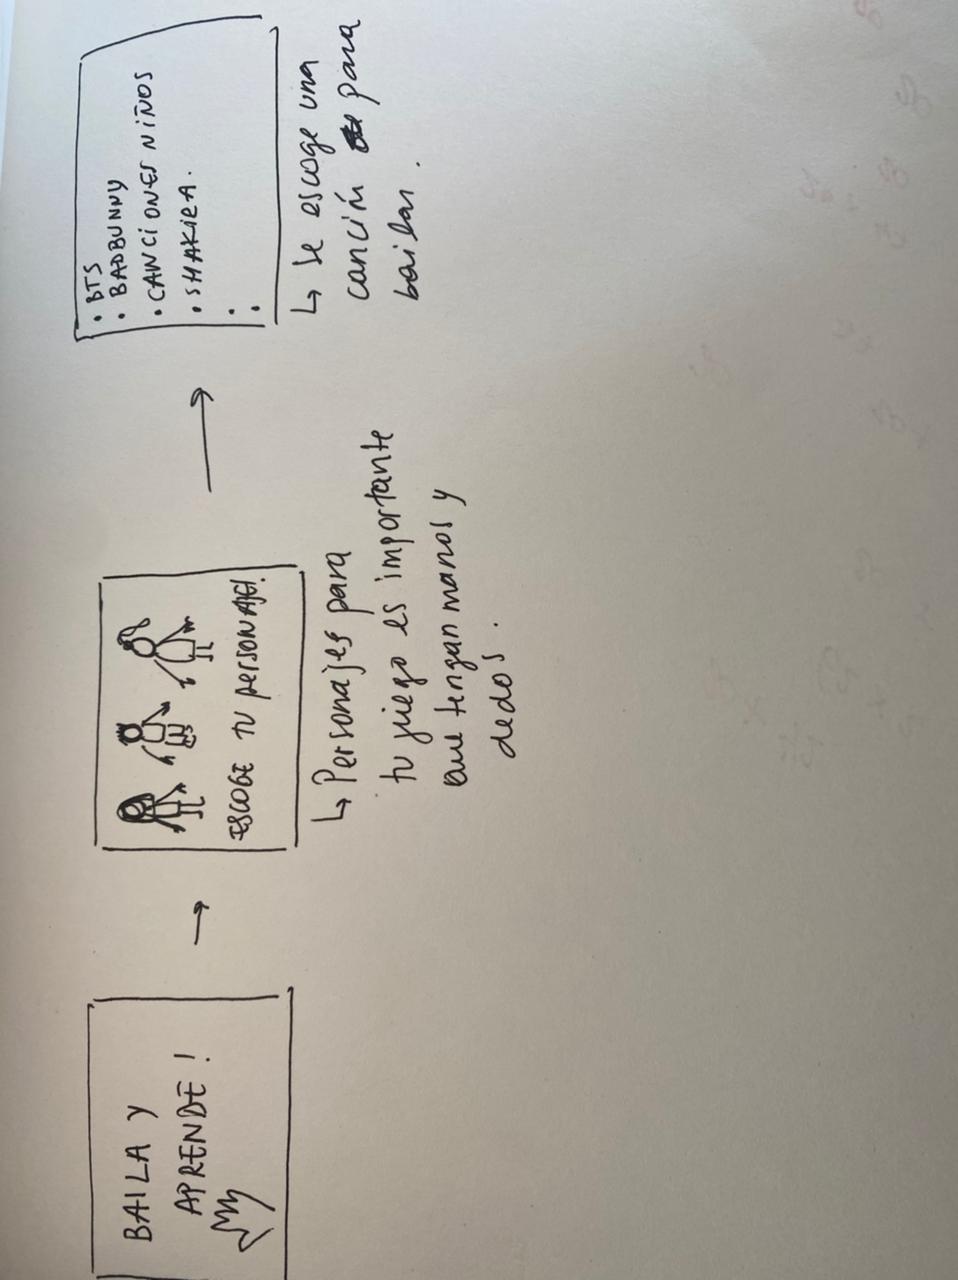 BAILA Y
APRENDE!
ESCOGE TU PERSONAJE!
↳ Personajes para
tu juego es importante
que tengan manos y
dedos.
• BTS
• BADBUNNY
• CANCIONES NIÑOS
• SHAKIRA.
•
•
↳ se escoge una
canción para
bailar.